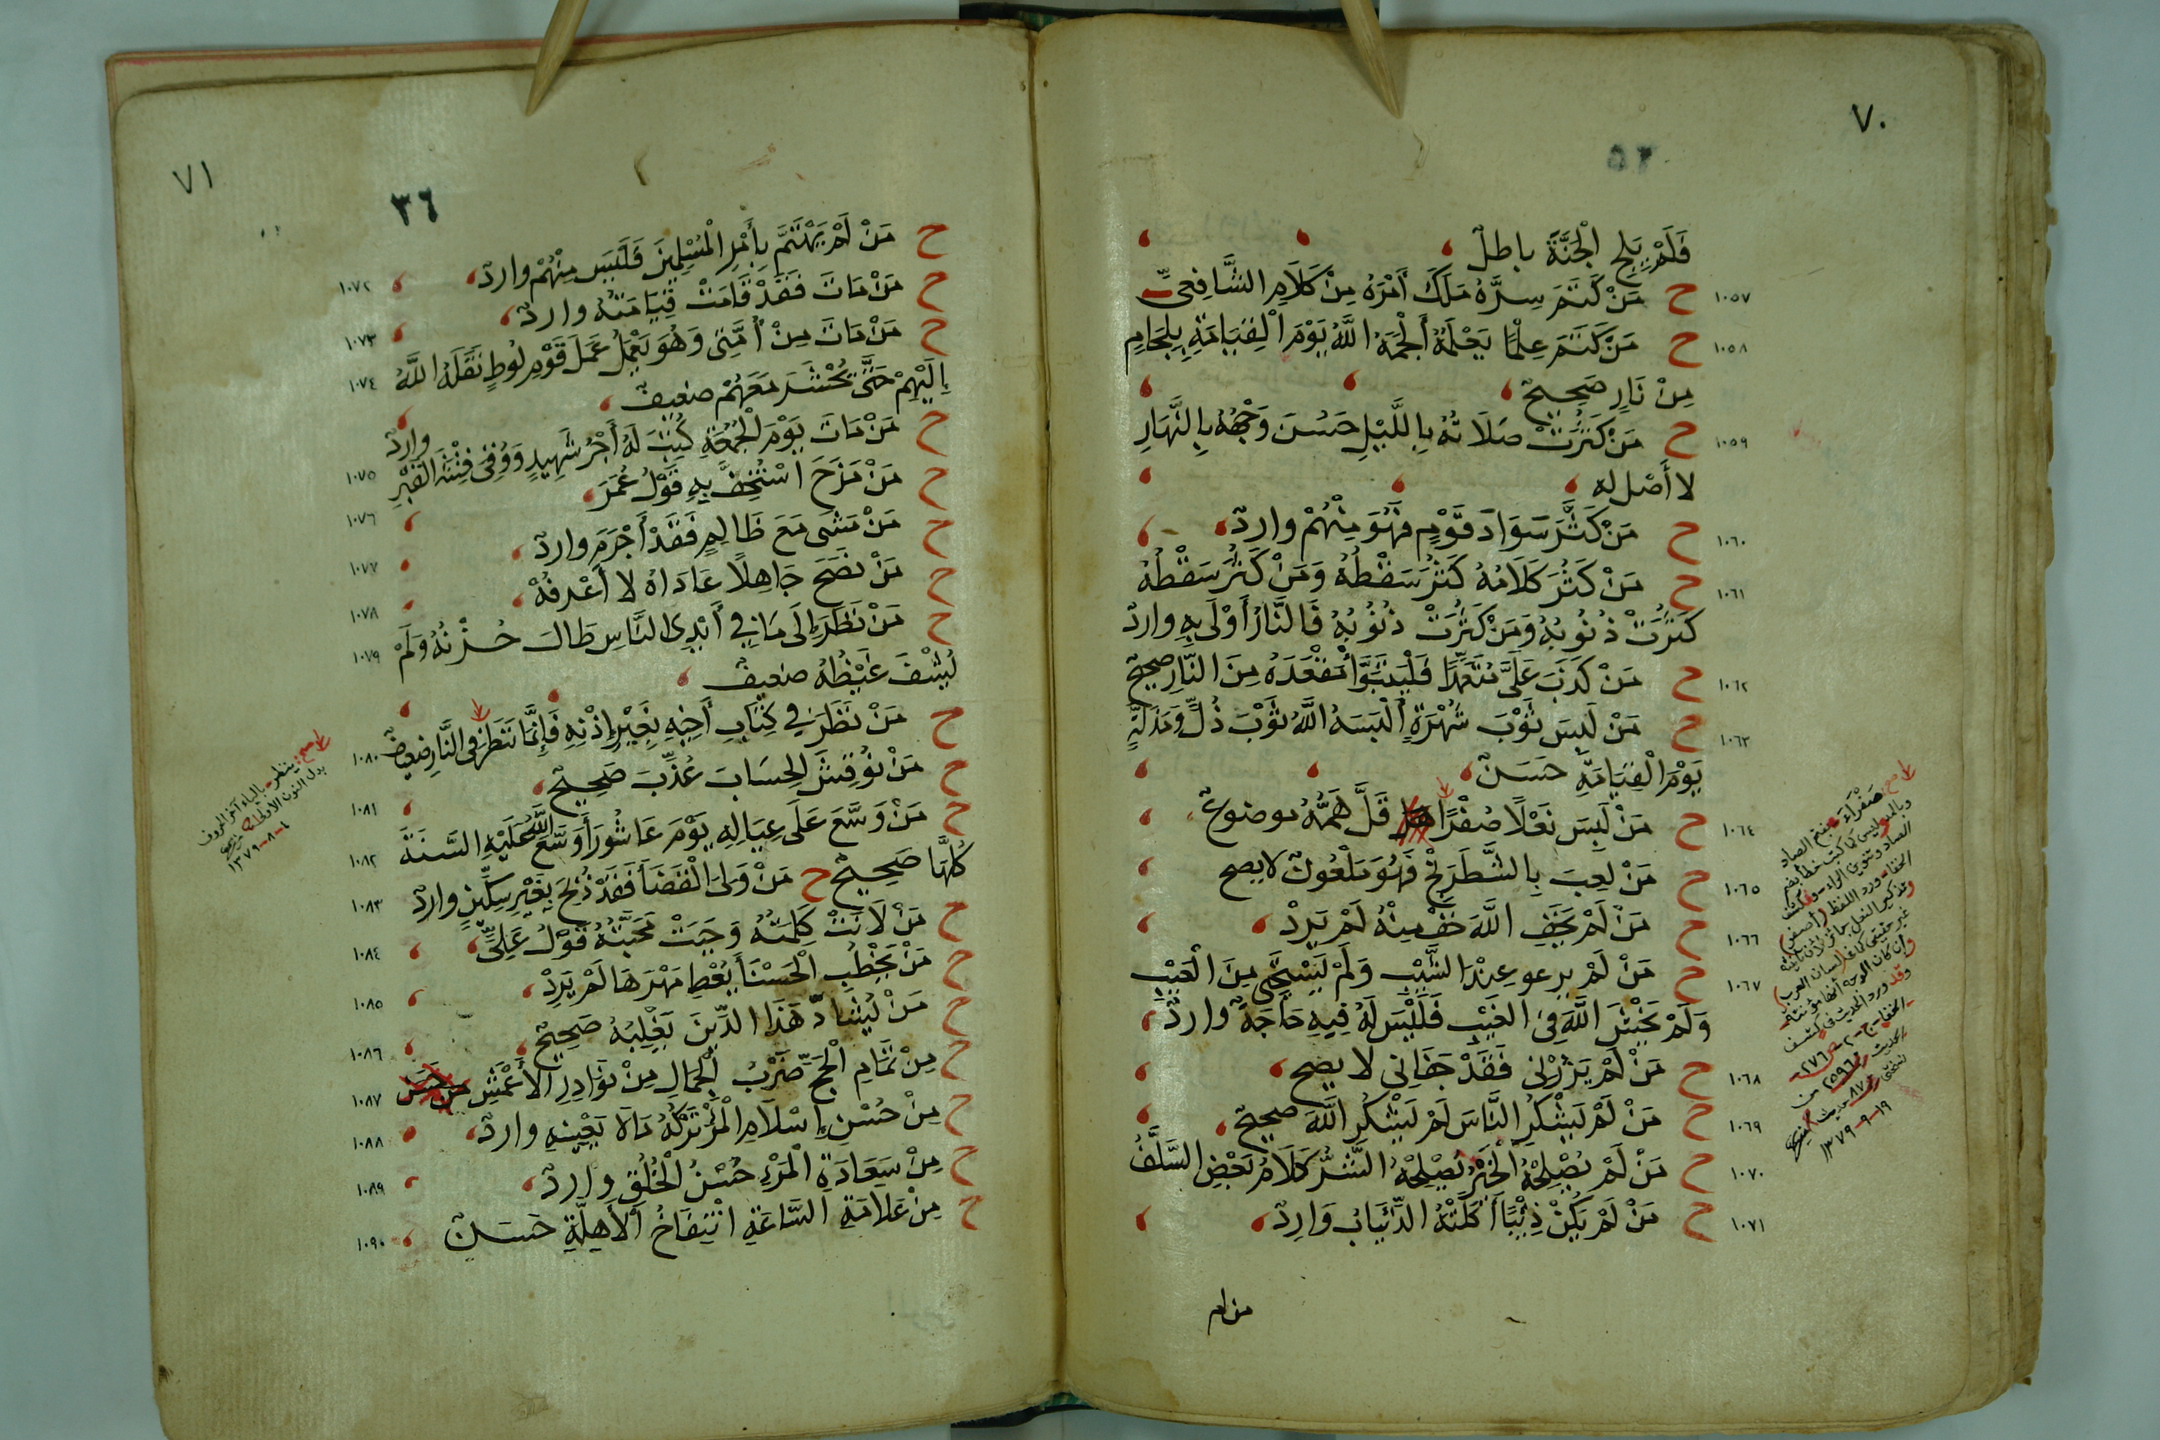 ٧٠
فَلَمْ يَلِجِ الْجَنَّةَ باطلٌ
١٠٥٧ ح مَنْ كَتَمَ سِرَّهُ مَلَكَ أَمْرَهُ مِنْ كَلَامِ الشَّافِعِيِّ
١٠٥٨ ح مَنْ كَتَمَ عِلْمًا يَعْلَمُهُ أَلْجَمَهُ اللَّهُ يَوْمَ الْقِيَامَةِ بِلِجَامٍ
مِنْ نَارٍ صَحِيحٌ
١٠٥٩ ح مَنْ كَثُرَتْ صَلَاتُهُ بِاللَّيْلِ حَسُنَ وَجْهُهُ بِالنَّهَارِ
لا أَصْل له
١٠٦٠ ح مَنْ كَثَّرَ سَوَادَ قَوْمٍ فَهُوَ مِنْهُمْ واردٌ
١٠٦١ ح مَنْ كَثُرَ كَلَامُهُ كَثُرَ سَقْطُهُ وَمَنْ كَثُرَ سَقْطُهُ
كَثُرَتْ ذُنُوبُهُ وَمَنْ كَثُرَتْ ذُنُوبُهُ فَالنَّارُ أَوْلَى بِهِ واردٌ
١٠٦٢ ح مَنْ كَذَبَ عَلَيَّ مُتَعَمِّدًا فَلْيَتَبَوَّأْ مَقْعَدَهُ مِنَ النَّارِ صحيحٌ
١٠٦٣ ح مَنْ لَبِسَ ثَوْبَ شُهْرَةٍ أَلْبَسَهُ اللَّهُ ثَوْبَ ذُلٍّ وَمَذَلَّةٍ
يَوْمَ الْقِيَامَةِ حَسَنٌ
١٠٦٤ ح مَنْ لَبِسَ نَعْلًا صُفْرًا قَلَّ هَمُّهُ موضوعٌ
١٠٦٥ ح مَنْ لَعِبَ بِالشَّطْرَنْجِ فَهُوَ مَلْعُونٌ لا يصح
١٠٦٦ ح مَنْ لَمْ يَخَفِ اللَّهَ خَفْ مِنْهُ لَمْ يَرِدْ
١٠٦٧ ح مَنْ لَمْ يرعو عِنْدَ الشَّيْبِ وَلَمْ يَسْتَحْيِ مِنَ الْعَيْبِ
وَلَمْ يَخْشَ اللَّهَ فِي الْغَيْبِ فَلَيْسَ لَهُ فِيهِ حَاجَةٌ واردٌ
١٠٦٨ ح مَنْ لَمْ يَزُرْنِي فَقَدْ جَفَانِي لا يصح
١٠٦٩ ح مَنْ لَمْ يَشْكُرِ النَّاسَ لَمْ يَشْكُرِ اللَّهَ صحيحٌ
١٠٧٠ ح مَنْ لَمْ يُصْلِحْهُ الْخَيْرُ يُصْلِحْهُ الشَّرُّ كَلَامُ بَعْضِ السَّلَفِ
١٠٧١ ح مَنْ لَمْ يَكُنْ ذِئْبًا أَكَلَتْهُ الذِّئَابُ وَارِدٌ
من لم
صَفْرَاءَ بفتح الصاد
١٩-٩-١٣٧٩
٧١
٣٦
١٠٧٢ ح مَنْ لَمْ يَهْتَمَّ بِأَمْرِ الْمُسْلِمِينَ فَلَيْسَ مِنْهُمْ واردٌ
١٠٧٣ ح مَنْ مَاتَ فَقَدْ قَامَتْ قِيَامَتُهُ واردٌ
١٠٧٤ ح مَنْ مَاتَ مِنْ أُمَّتِي وَهُوَ يَعْمَلُ عَمَلَ قَوْمِ لُوطٍ نَقَلَهُ اللَّهُ
إِلَيْهِمْ حَتَّى يُحْشَرَ مَعَهُمْ ضعيفٌ
١٠٧٥ ح مَنْ مَاتَ يَوْمَ الْجُمُعَةِ كُتِبَ لَهُ أَجْرُ شَهِيدٍ وَوُقِيَ فِتْنَةَ الْقَبْرِ واردٌ
١٠٧٦ ح مَنْ مَزَحَ اسْتُخِفَّ بِهِ قَوْلُ عُمَرَ
١٠٧٧ ح مَنْ مَشَى مَعَ ظَالِمٍ فَقَدْ أَجْرَمَ واردٌ
١٠٧٨ ح مَنْ نَصَحَ جَاهِلًا عَادَاهُ لا أَعْرِفُهُ
١٠٧٩ ح مَنْ نَظَرَ إِلَى مَا فِي أَيْدِي النَّاسِ طَالَ حُزْنُهُ وَلَمْ
يُشْفَ غَيْظُهُ ضعيفٌ
١٠٨٠ ح مَنْ نَظَرَ فِي كِتَابِ أَخِيهِ بِغَيْرِ إِذْنِهِ فَإِنَّمَا نَنْظُرُ فِي النَّارِ ضعيفٌ
١٠٨١ ح مَنْ نُوقِشَ الْحِسَابَ عُذِّبَ صَحِيحٌ
١٠٨٢ ح مَنْ وَسَّعَ عَلَى عِيَالِهِ يَوْمَ عَاشُورَا وَسَّعَ اللَّهُ عَلَيْهِ السَّنَةَ
كُلَّهَا صَحِيحٌ ح مَنْ وَلِيَ الْقَضَاءَ فَقَدْ ذُبِحَ بِغَيْرِ سِكِّينٍ واردٌ ١٠٨٣
١٠٨٤ ح مَنْ لَانَتْ كَلِمَتُهُ وَجَبَتْ مَحَبَّتُهُ قَوْلُ عَلِيٍّ
١٠٨٥ ح مَنْ يَخْطُبِ الْحَسْنَاءَ يُعْطِ مَهْرَهَا لَمْ يَرِدْ
١٠٨٦ ح مَنْ يُشَادَّ هَذَا الدِّينَ يَغْلِبْهُ صَحِيحٌ
١٠٨٧ ح مِنْ تَمَامِ الْحَجِّ ضَرْبُ الْجَمَّالِ مِنْ نَوَادِرِ الْأَعْمَشِ
١٠٨٨ ح مِنْ حُسْنِ إِسْلَامِ الْمَرْءِ تَرْكُهُ مَا لَا يَعْنِيهِ واردٌ
١٠٨٩ ح مِنْ سَعَادَةِ الْمَرْءِ حُسْنُ الْخُلُقِ واردٌ
١٠٩٠ ح مِنْ عَلَامَةِ السَّاعَةِ انْتِفَاخُ الْأَهِلَّةِ حَسَنٌ
صح: ينظر بالياء آخر الحروف
بدل النون الأولى
١-٨-١٣٧٩